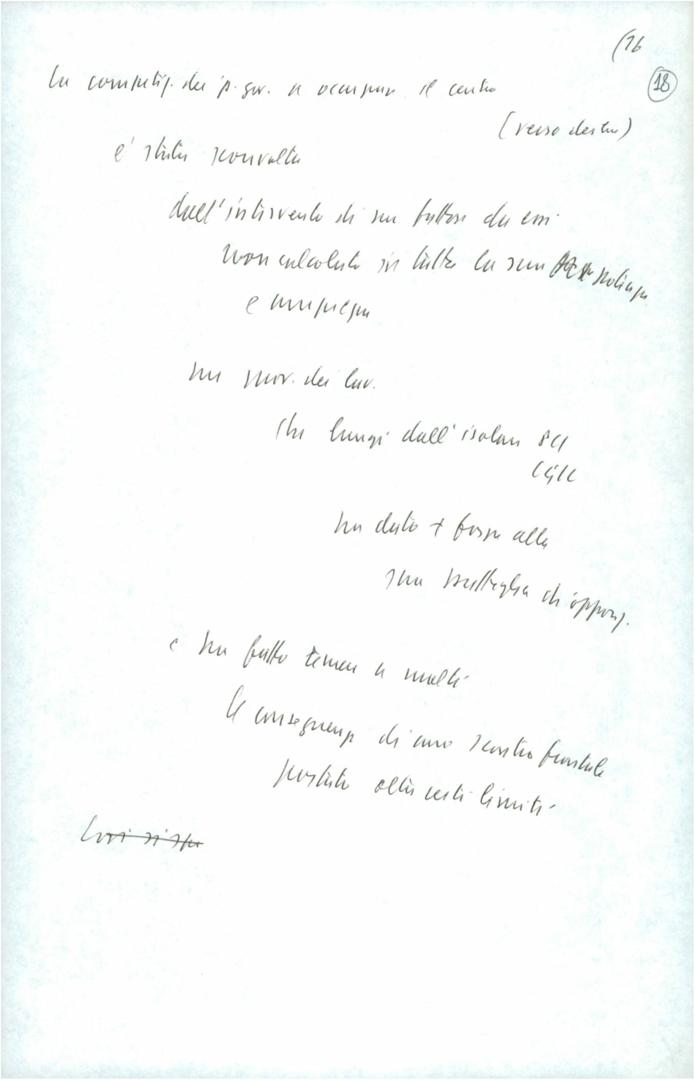 (16
18
La competiz. dei p. gov. a occupare il centro
(verso destra)
è stata sconvolta
dall'intervento di un fattore da essi
non calcolato in tutta la sua potenza
e ampiezza
un mov. dei lav.
che lungi dall'isolare PCI
CGIL
ha dato + forza alla
sua battaglia di oppos.
e ha fatto temere a molti
le conseguenze di uno scontro frontale
portato oltre certi limiti
Così si